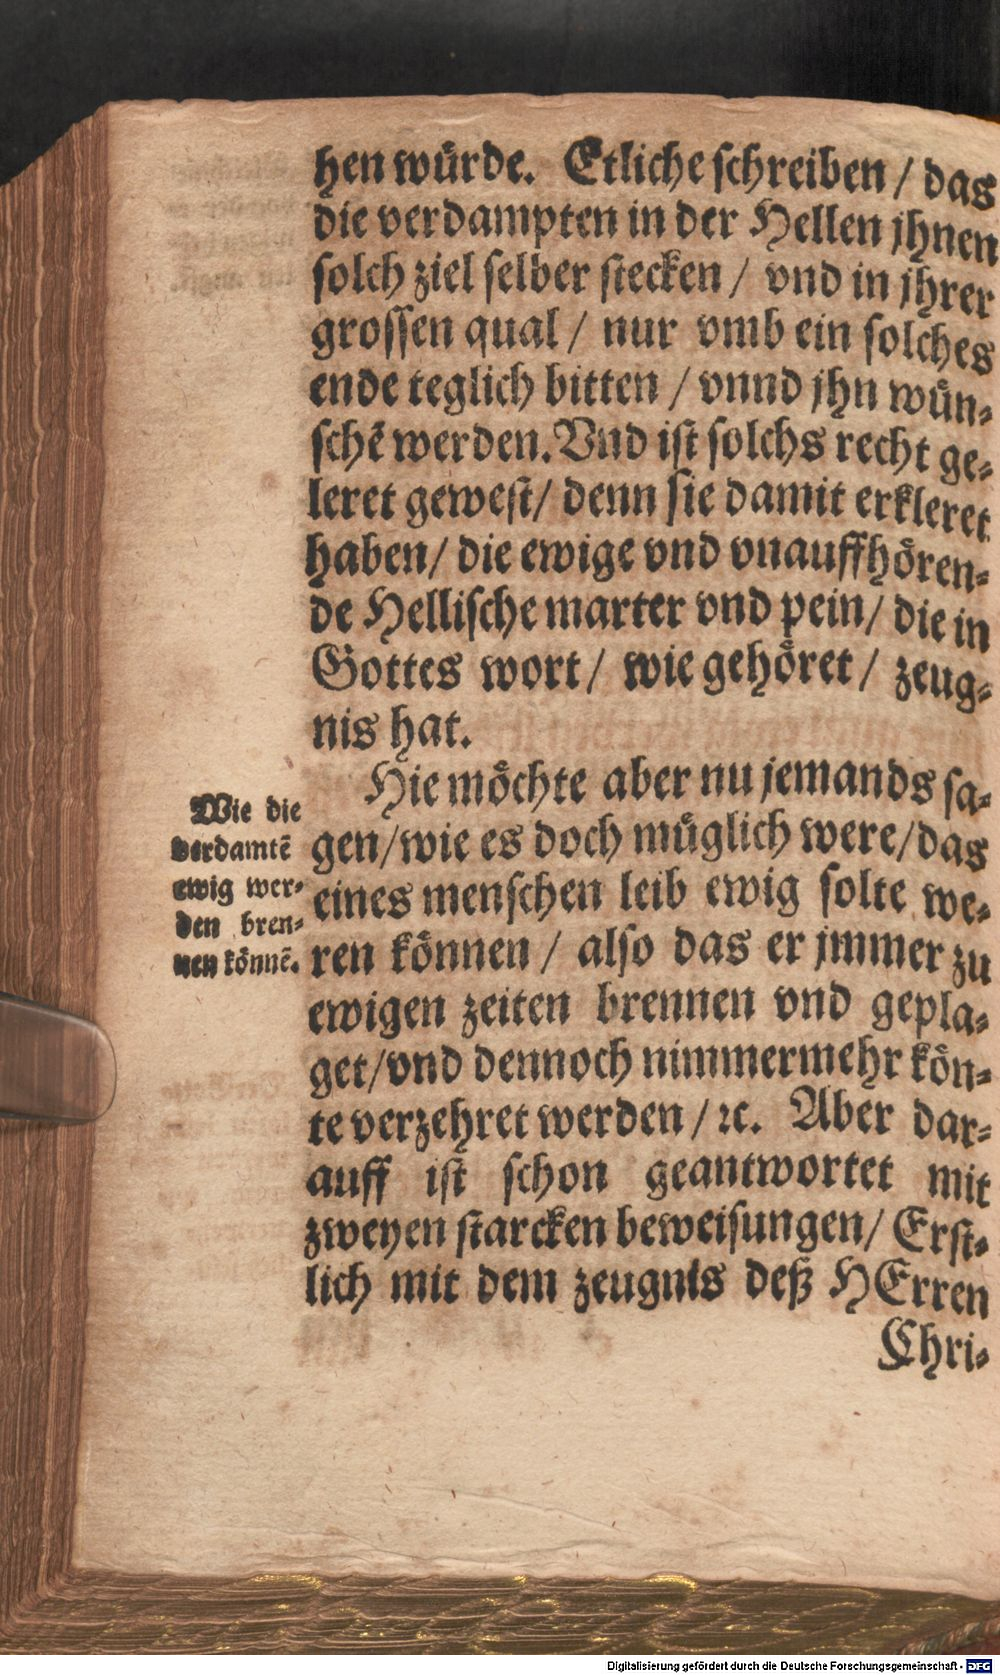 hen wuͤrde. Etliche schreiben / das
die verdampten in der Hellen jhnen
solch ziel selber stecken / vnd in jhrer
grossen qual / nur vmb ein solches
ende teglich bitten / vnnd jhn wuͤn-
schẽ werden. Vnd ist solchs recht ge-
leret gewest / denn sie damit erkleret
haben / die ewige vnd vnauffhoͤren-
de Hellische marter vnd pein / die in
Gottes wort / wie gehoͤret / zeug-
nis hat.
Hie moͤchte aber nu jemands sa-
gen / wie es doch muͤglich were / das
eines menschen leib ewig solte we-
ren koͤnnen / also das er jmmer zu
ewigen zeiten brennen vnd gepla-
get / vnd dennoch nimmermehr koͤn-
te verzehret werden / ꝛc. Aber dar-
auff ist schon geantwortet mit
zweyen starcken beweisungen / Erst-
lich mit dem zeugnis deß HErren
Chri-
Wie die
verdamtẽ
ewig wer-
den bren-
nen koͤnnẽ.
Digitalisierung gefördert durch die Deutsche Forschungsgemeinschaft - DFG